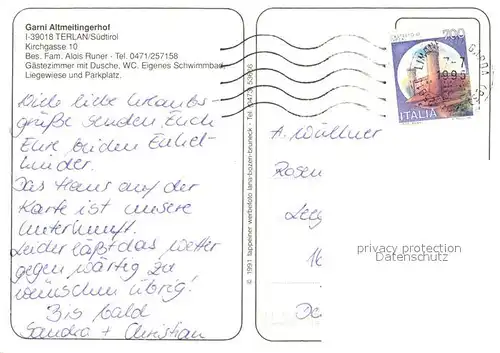 Garni Altmeitingerhof
I-39018 TERLAN/Südtirol
Kirchgasse 10
Bes. Fam. Alois Runer - Tel. 0471/257158
Gästezimmer mit Dusche, WC. Eigenes Schwimmbad,
Liegewiese und Parkplatz.
Viele liebe Urlaubs-
grüße senden Euch
Eure beiden Enkel-
kinder.
Das Haus auf der
Karte ist unsere
Unterkunft.
Leider läßt das Wetter
gegenwärtig zu
wünschen übrig!
Bis bald
Sandra + Christian
© 1991 tappeiner werbefoto lana-bozen-bruneck - Tel. 0473/
700
ITALIA
GARDA
1995
A.
Rosen
privacy protection
OnlineRetro.com